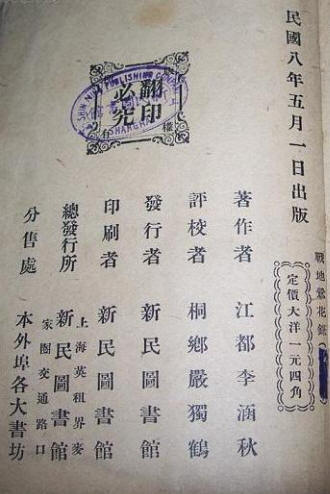 民國八年五月一日出版
戰地鶯花錄
定價大洋一元四角
有權
翻印
必究
SHIN MIN PUBLISHING COMPANY
SHANGHAI
著作者 江都李涵秋
評校者 桐鄉嚴獨鶴
發行者 新民圖書館
印刷者 新民圖書館
總發行所 上海英租界麥家圈交通路口 新民圖書館
分售處 本外埠各大書坊